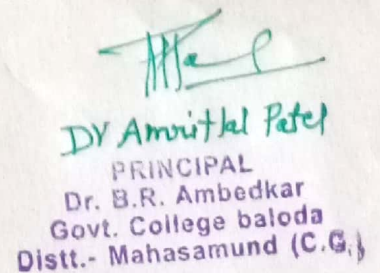 Dr Amritlal Patel
PRINCIPAL
Dr. B.R. Ambedkar
Govt. College baloda
Distt.- Mahasamund (C.G.)